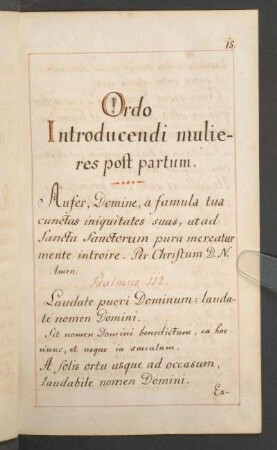 15.
Ordo
Introducendi mulie-
res post partum.
Aufer, Domine, a famula tua
cunctas iniquitates suas, ut ad
Sancta Sanctorum pura mereatur
mente introire. Per Christum D. N.
Amen.
Psalmus 112.
Laudate pueri Dominum: lauda-
te nomen Domini.
Sit nomen Domini benedictum, ex hoc
nunc, et usque in saeculum.
A solis ortu usque ad occasum,
laudabile nomen Domini.
Ex-